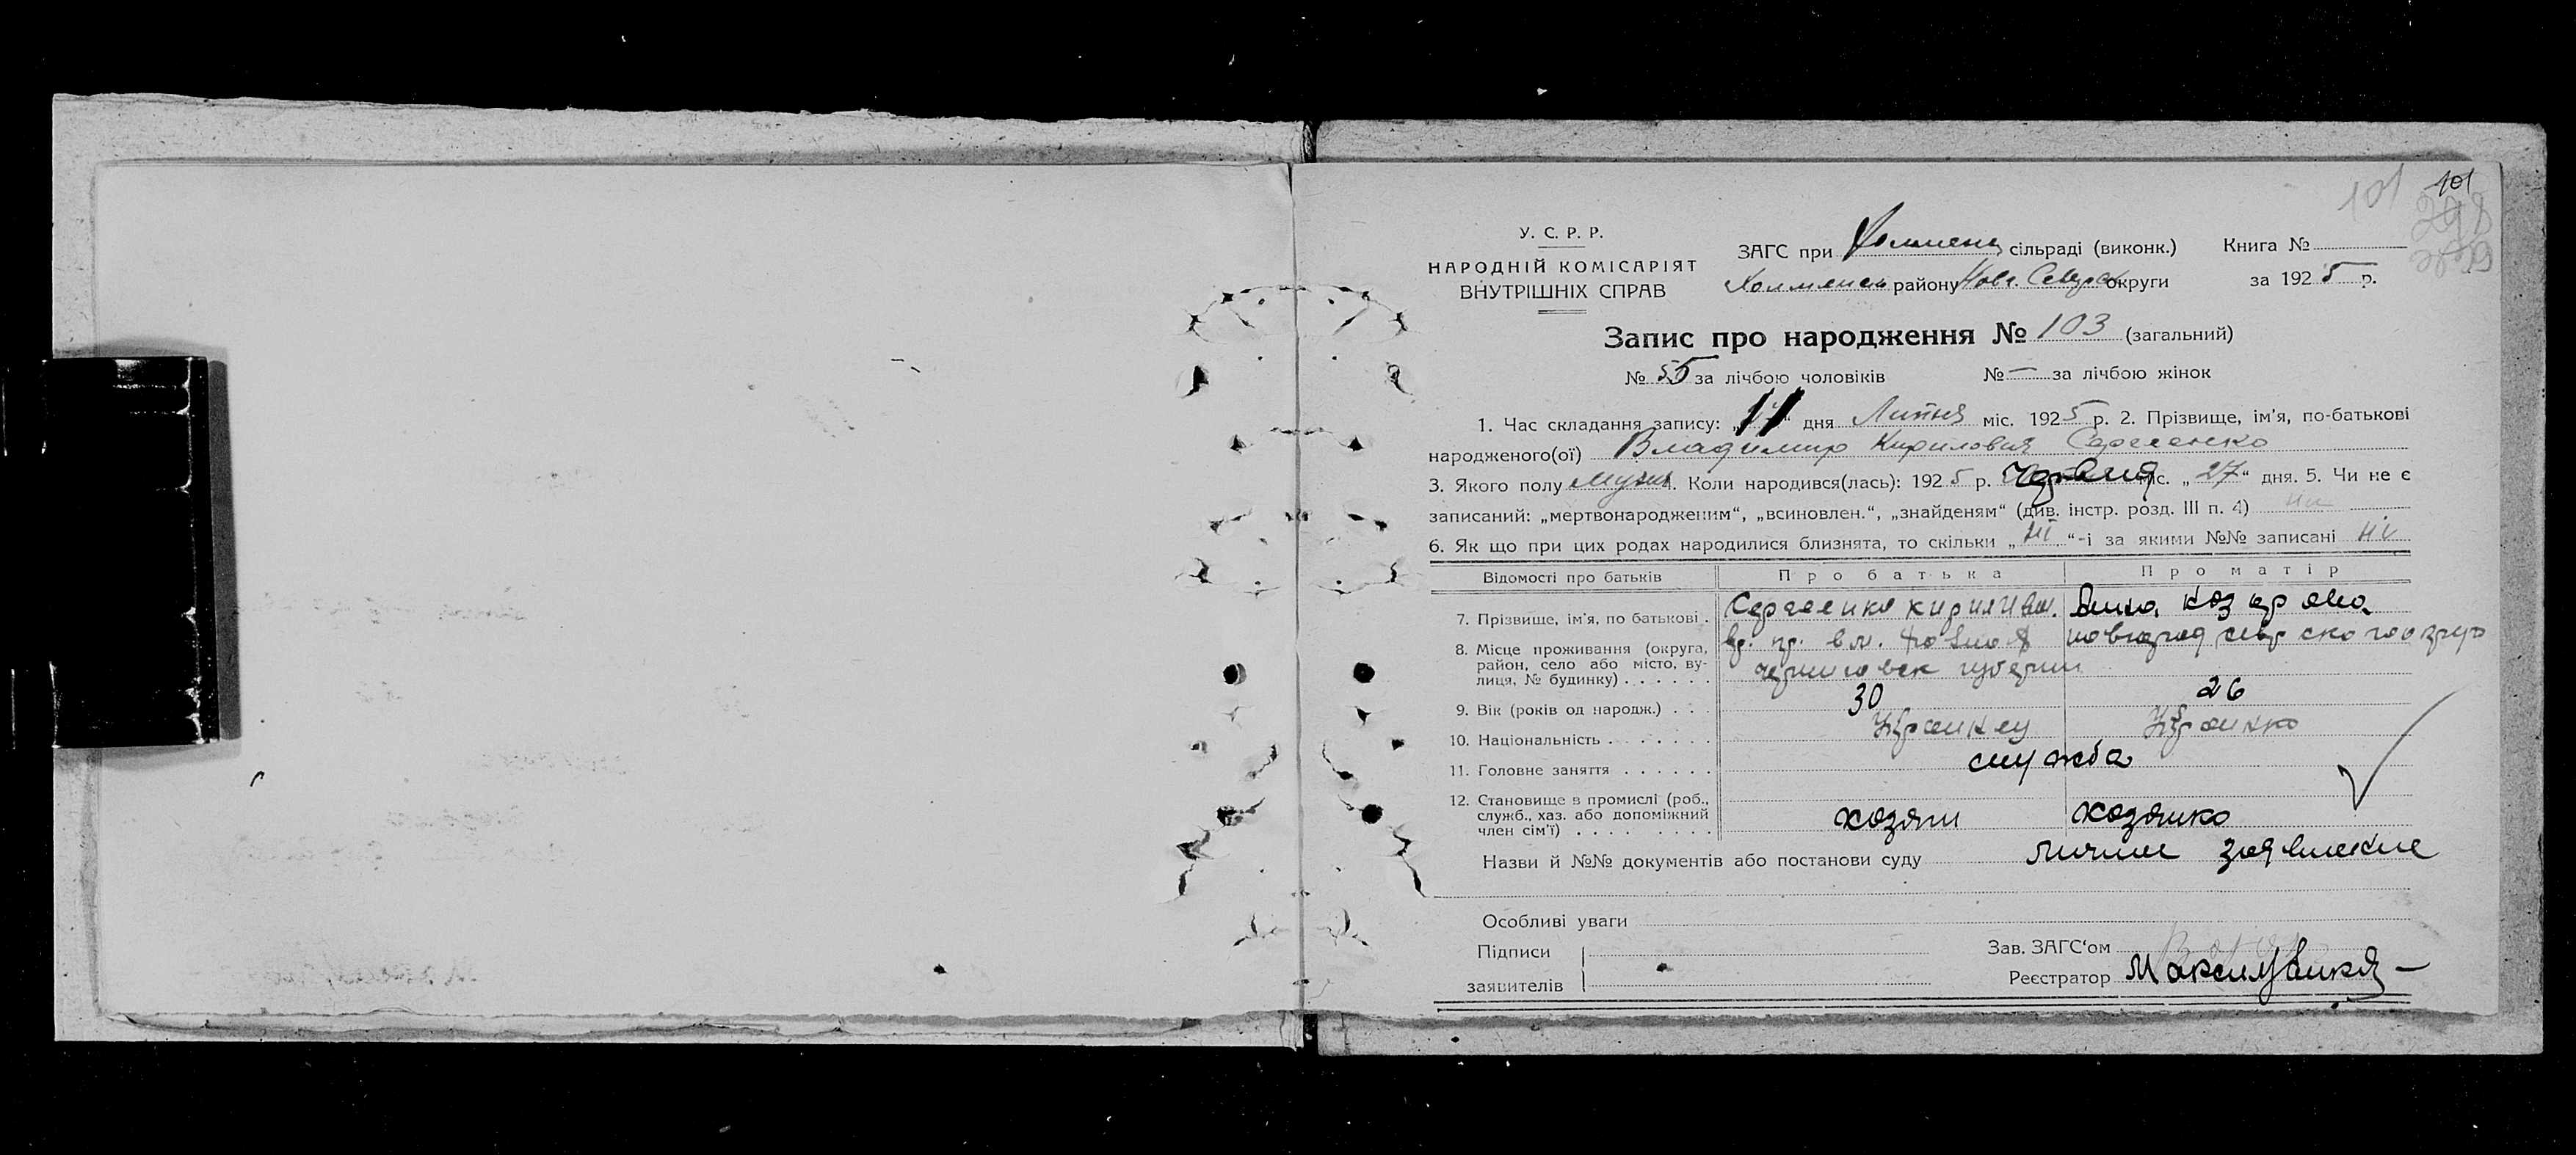 101 101
298
У. С. Р. Р.
НАРОДНІЙ КОМІСАРІЯТ
ВНУТРІШНІХ СПРАВ
ЗАГС при Холменск сільраді (виконк.) Книга №
Холменск району Новг. Север округи за 1925 р.
Запис про народження № 103 (загальний)
№ 55 за лічбою чоловіків № — за лічбою жінок
1. Час складання запису: „ “ дня Липня міс. 1925 р. 2. Прізвище, ім'я, по-батькові
народженого(ої) Владимир Кирилович Сергеенко
3. Якого полу мужск 4. Коли народився(лась): 1925 р. Червня міс. „27“ дня. 5. Чи не є
записаний: „мертвонародженим“, „всиновлен.“, „знайденям“ (див. інстр. розд. III п. 4) ни
6. Як що при цих родах народилися близнята, то скільки „ні“-і за якими №№ записані ні
Відомості про батьків Про батька Про матір
7. Прізвище, ім'я, по батькові . Сергеенко Кирил Ив. Анна
8. Місце проживання (округа,
район, село або місто, ву-
лиця, № будинку) . . . . . .
губернии
9. Вік (років од народж.) . . . 30 26
10. Національність . . . . . . .
11. Головне заняття . . . . . . служба
12. Становище в промислі (роб.,
служб., хаз. або допоміжний
член сім'ї) . . . . . . . . хозяин хозяйко
Назви й №№ документів або постанови суду личное заявление
Особливі уваги
Підписи
заявителів
Зав. ЗАГС'ом
Реєстратор